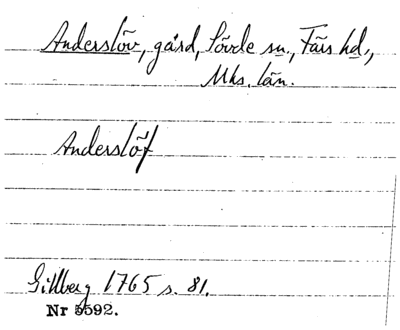 Anderslöv, gård, Sövde sn., Färs hd.,
Mhs. län.
Anderslöf
Gillberg 1765 s. 81.
Nr 5592.